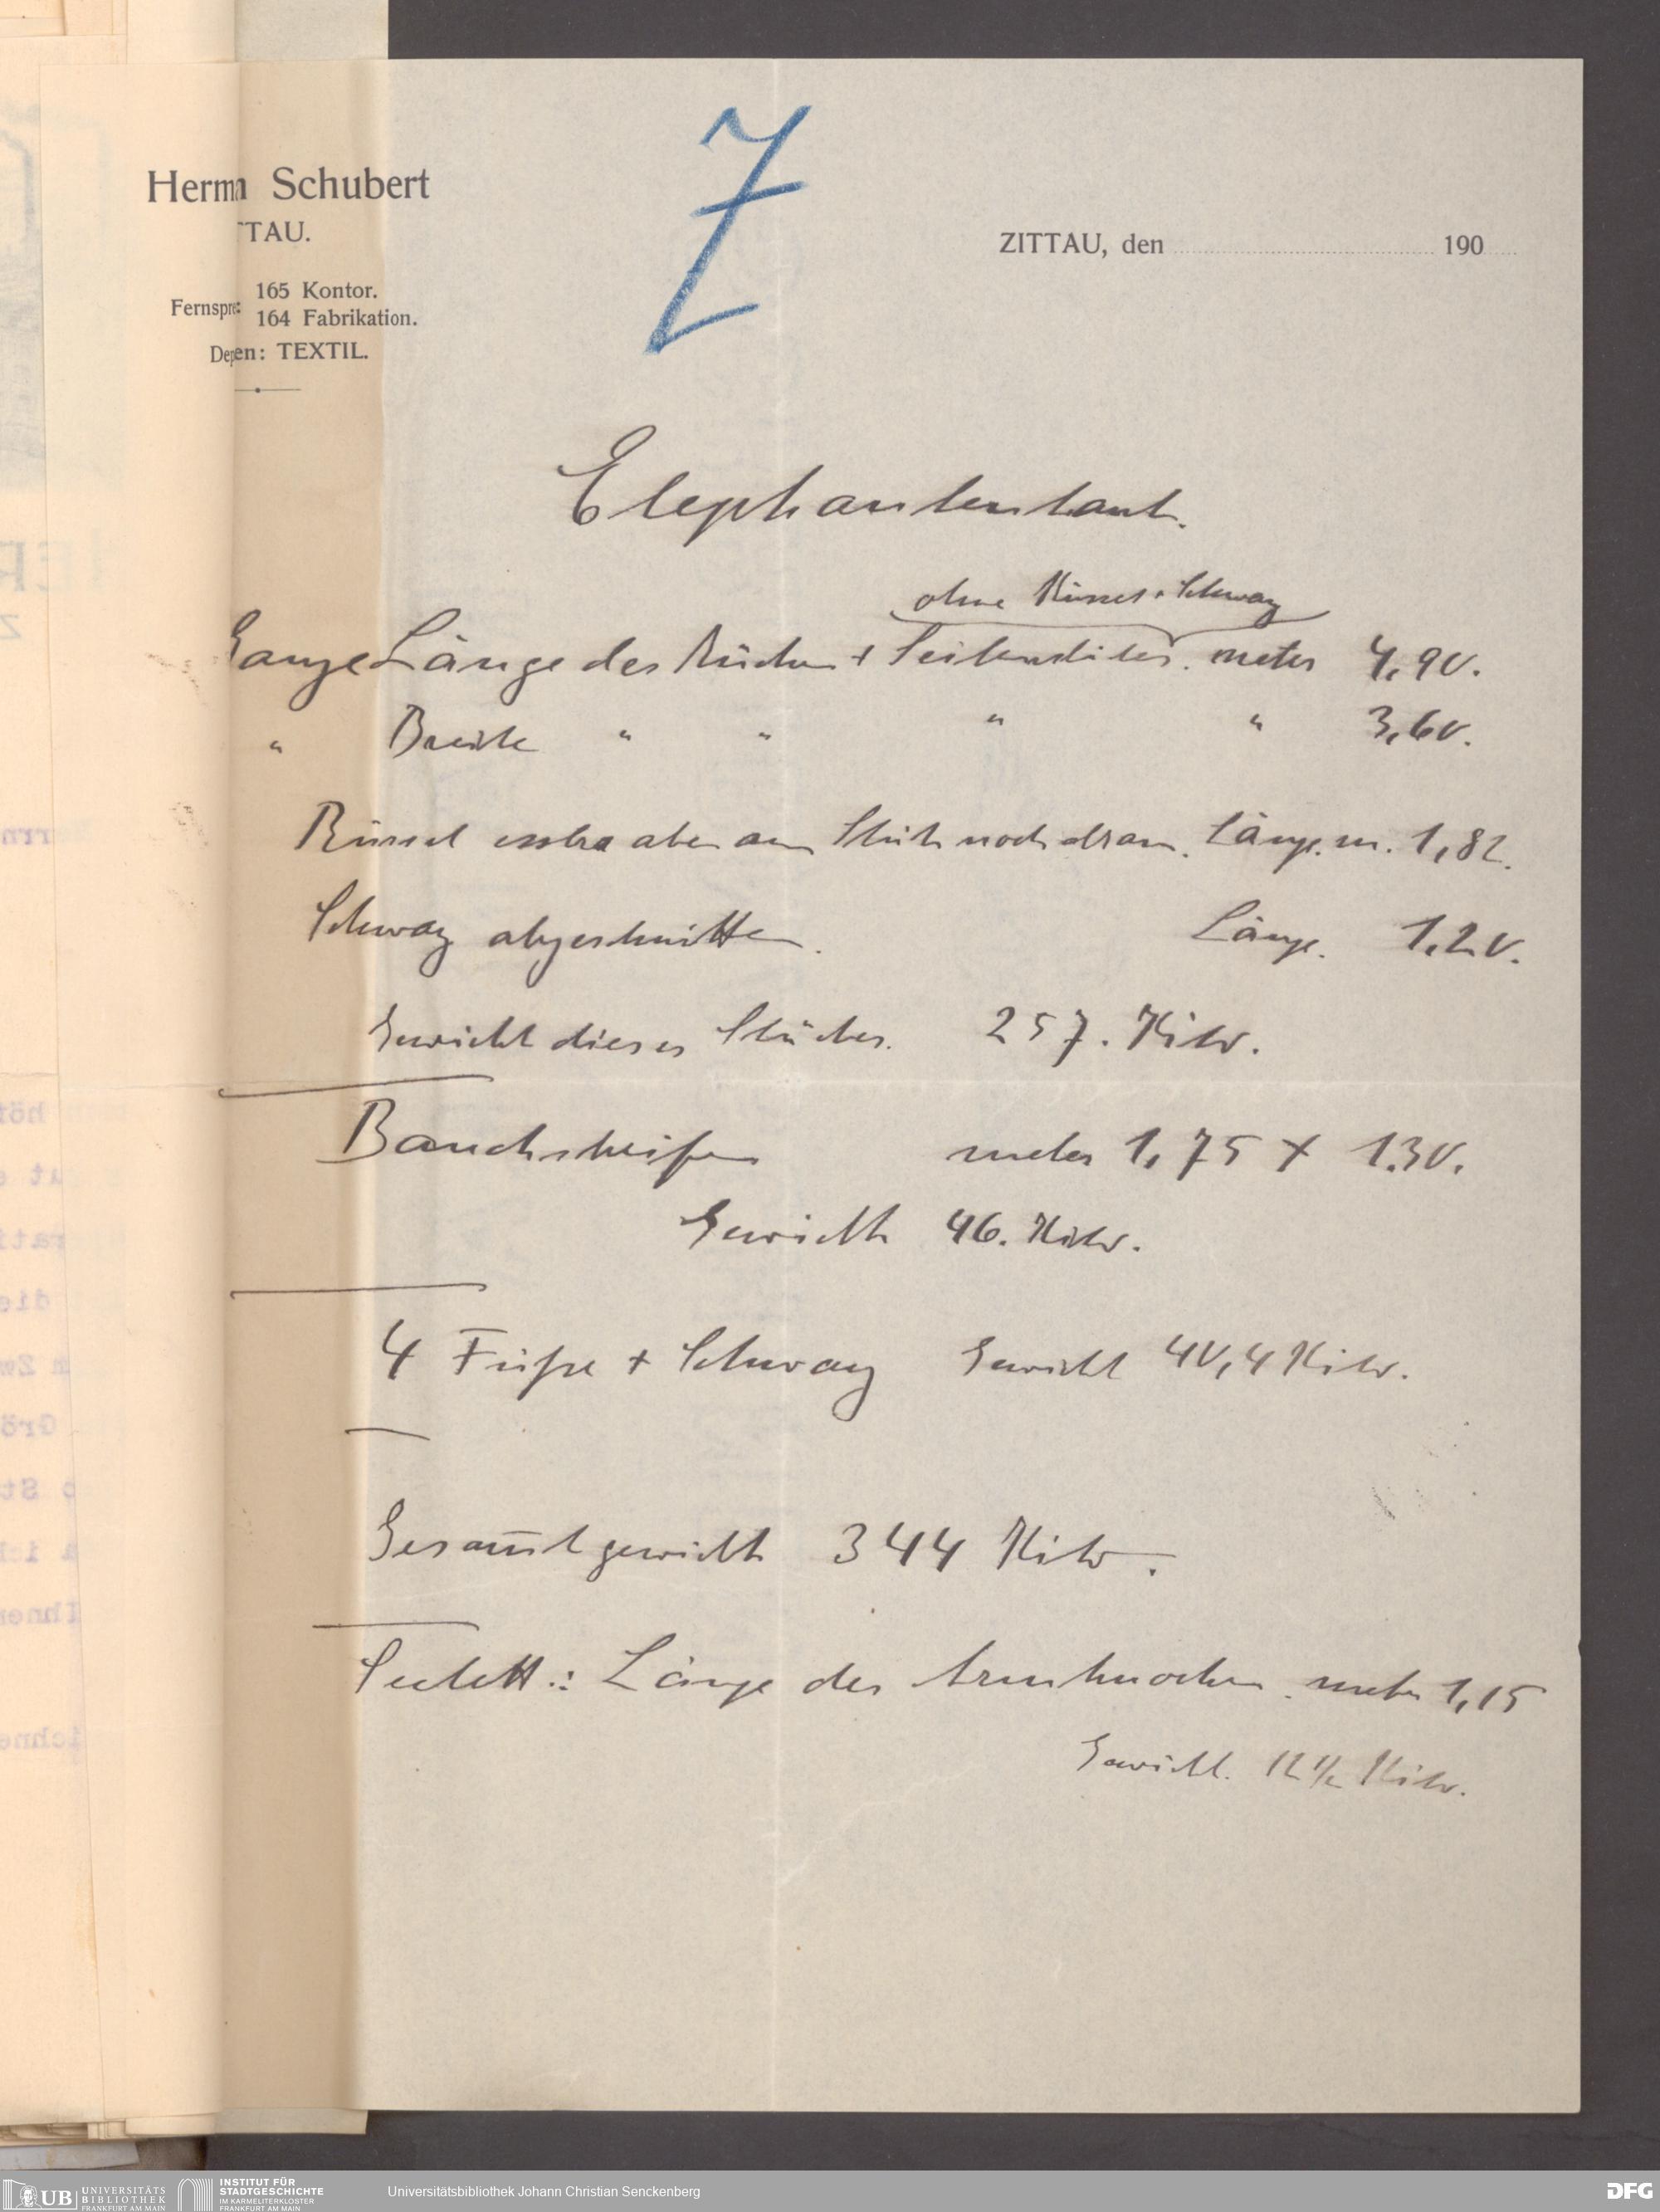 Herm Schubert
TTAU.
ZITTAU, den 190
Fernspre 165 Kontor.
164 Fabrikation.
Depen: TEXTIL.
Z
Elephantenhaut.
ohne Rüssel + Schwanz
Ganze Länge des Rücken + Seitenstückes. meter 4,90.
" Breite " " " " 3,60.
Rüssel extra aber am Stück noch dran. Länge. m. 1,82.
Schwanz abgeschnitten. Länge. 1,20.
Gewicht dieses Stückes. 257. Kilo.
Bauchstreifen meter 1,75 x 1.30.
Gewicht 46. Kilo.
4 Füße + Schwanz Gewicht 40,4 Kilo.
Gesam̅tgewicht 344 Kilo.
Länge des Armknochen. meter 1,15
Gewicht. 12 1/2 Kilo.
UB UNIVERSITÄTS
BIBLIOTHEK
FRANKFURT AM MAIN
INSTITUT FÜR
STADTGESCHICHTE
IM KARMELITERKLOSTER
FRANKFURT AM MAIN
Universitätsbibliothek Johann Christian Senckenberg
DFG